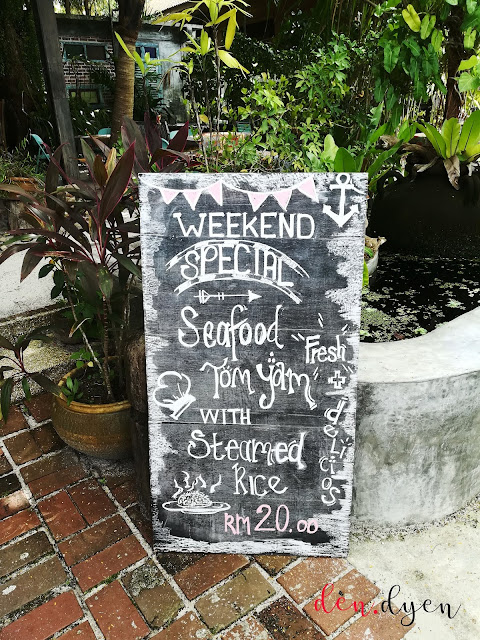 WEEKEND
SPECIAL
Seafood
Tom yam
WITH
Steamed
Rice
RM 20.00
Fresh
+
delicios
dèn.dyen